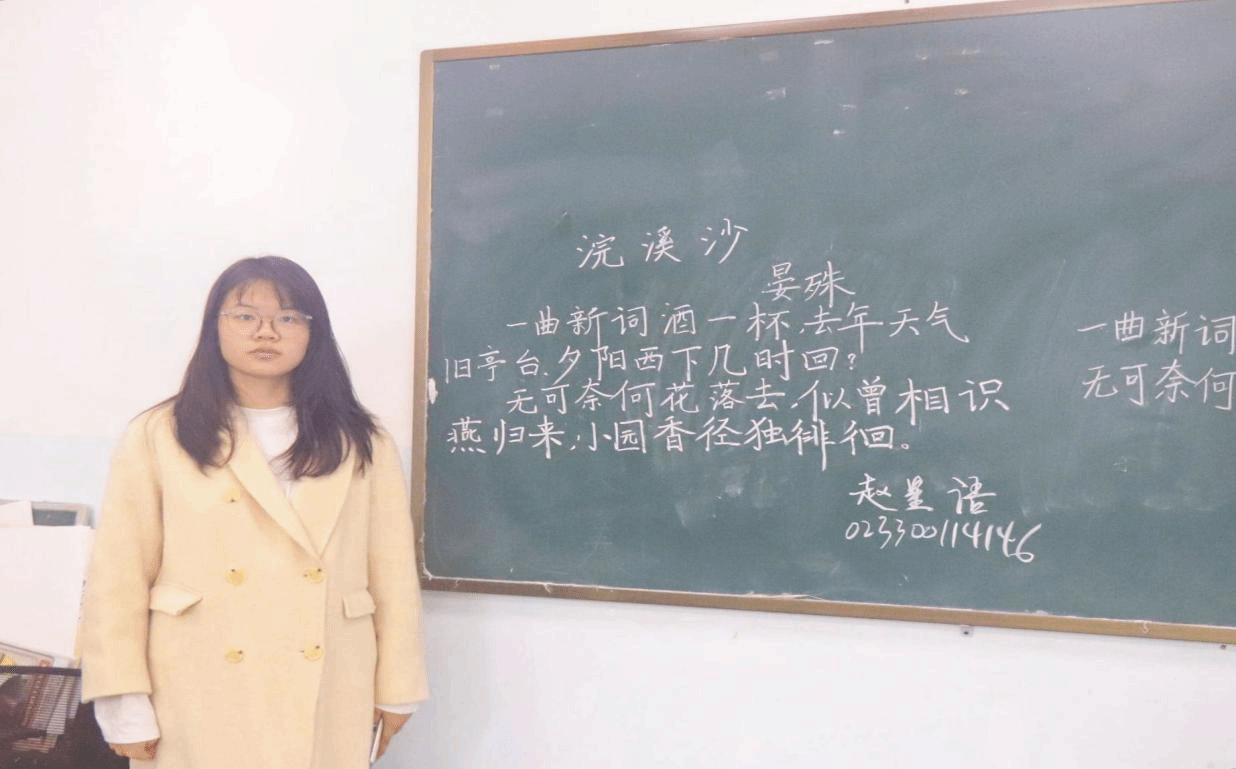 浣溪沙
晏殊
一曲新词酒一杯,去年天气
旧亭台.夕阳西下几时回?
无可奈何花落去,似曾相识
燕归来,小园香径独徘徊。
赵星语
023300114146
一曲新词
无可奈何